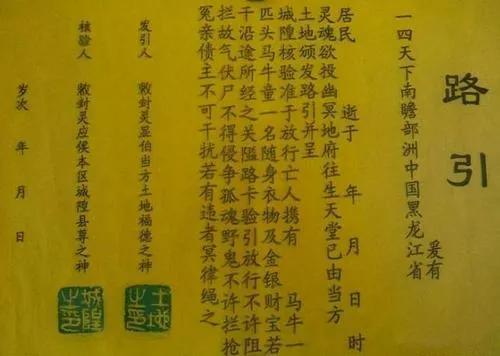 路引
一四天下南瞻部洲中国黑龙江省 爰有
居民 逝于 年 月 日 时
灵魂欲投幽冥地府往生天堂已由当方
土地颁发路引并呈
城隍核验准于放行亡人携有 马牛一
匹头马牛童一名随身衣物及金银财宝若
干沿途所经之关隘路卡验引放行不许阻
拦故气伏尸不得侵争孤魂野鬼不许拦抢
冤亲债主不可干扰若有违者冥律绳之
发引人 敕封灵显伯当方土地福德之神
土地之印
核验人 敕封灵应侯本区城隍县尊之神
城隍之印
岁次 年 月 日